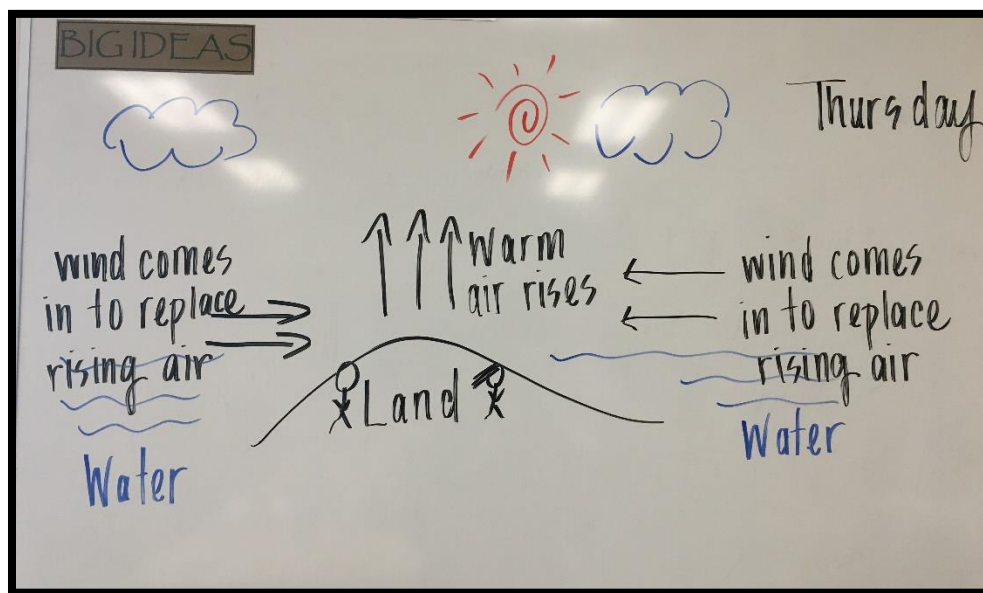 BIG IDEAS
Thursday
wind comes
in to replace
rising air
Water
Warm
air rises
Land
wind comes
in to replace
rising air
Water